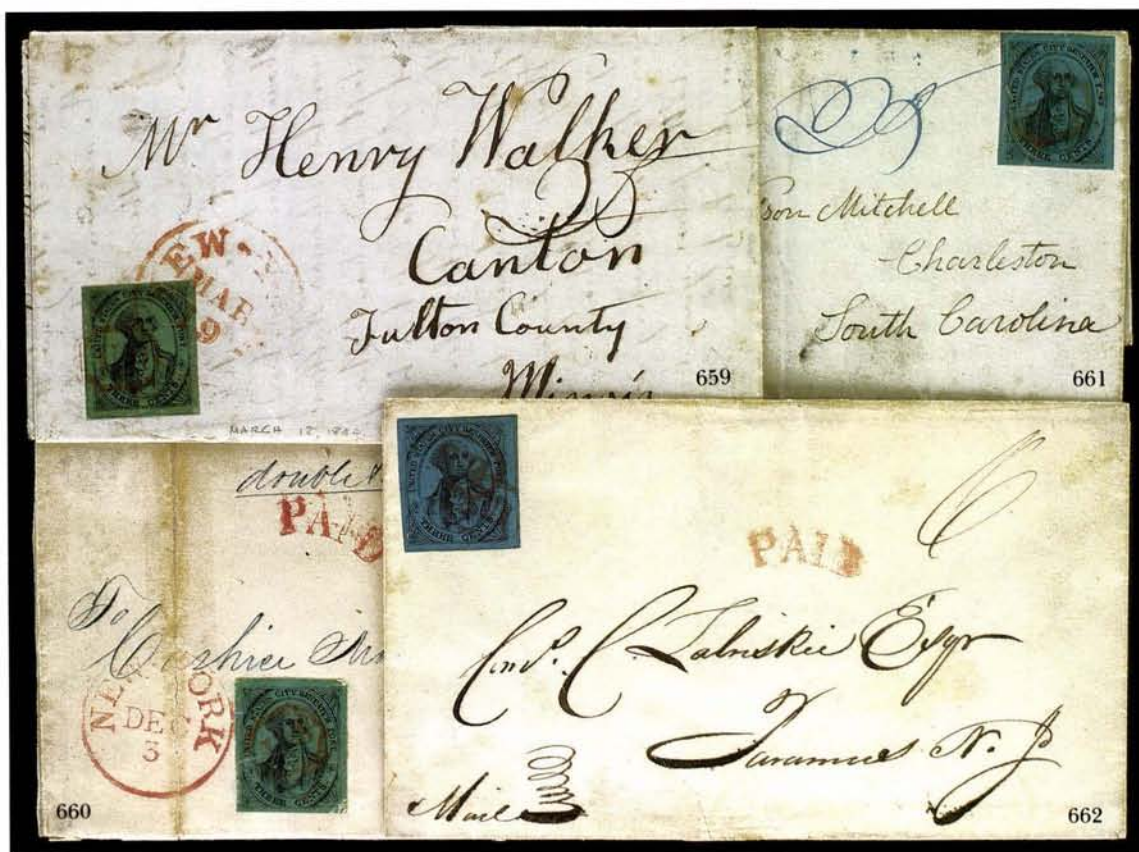 Mr Henry Walker
Canton
Fulton County
Illinois
EW
MAR
9
UNITED STATES CITY DESPATCH POST
THREE CENTS
MARCH 18, 184
659
UNITED STATES CITY DESPATCH POST
THREE CENTS
son Mitchell
Charleston
South Carolina
661
double
PAID
To
Cashier
NEW YORK
DEC
3
UNITED STATES CITY DESPATCH POST
THREE CENTS
660
UNITED STATES CITY DESPATCH POST
THREE CENTS
6
PAID
C. Zabriskie Esqr
Paramus N. J
Mail
662